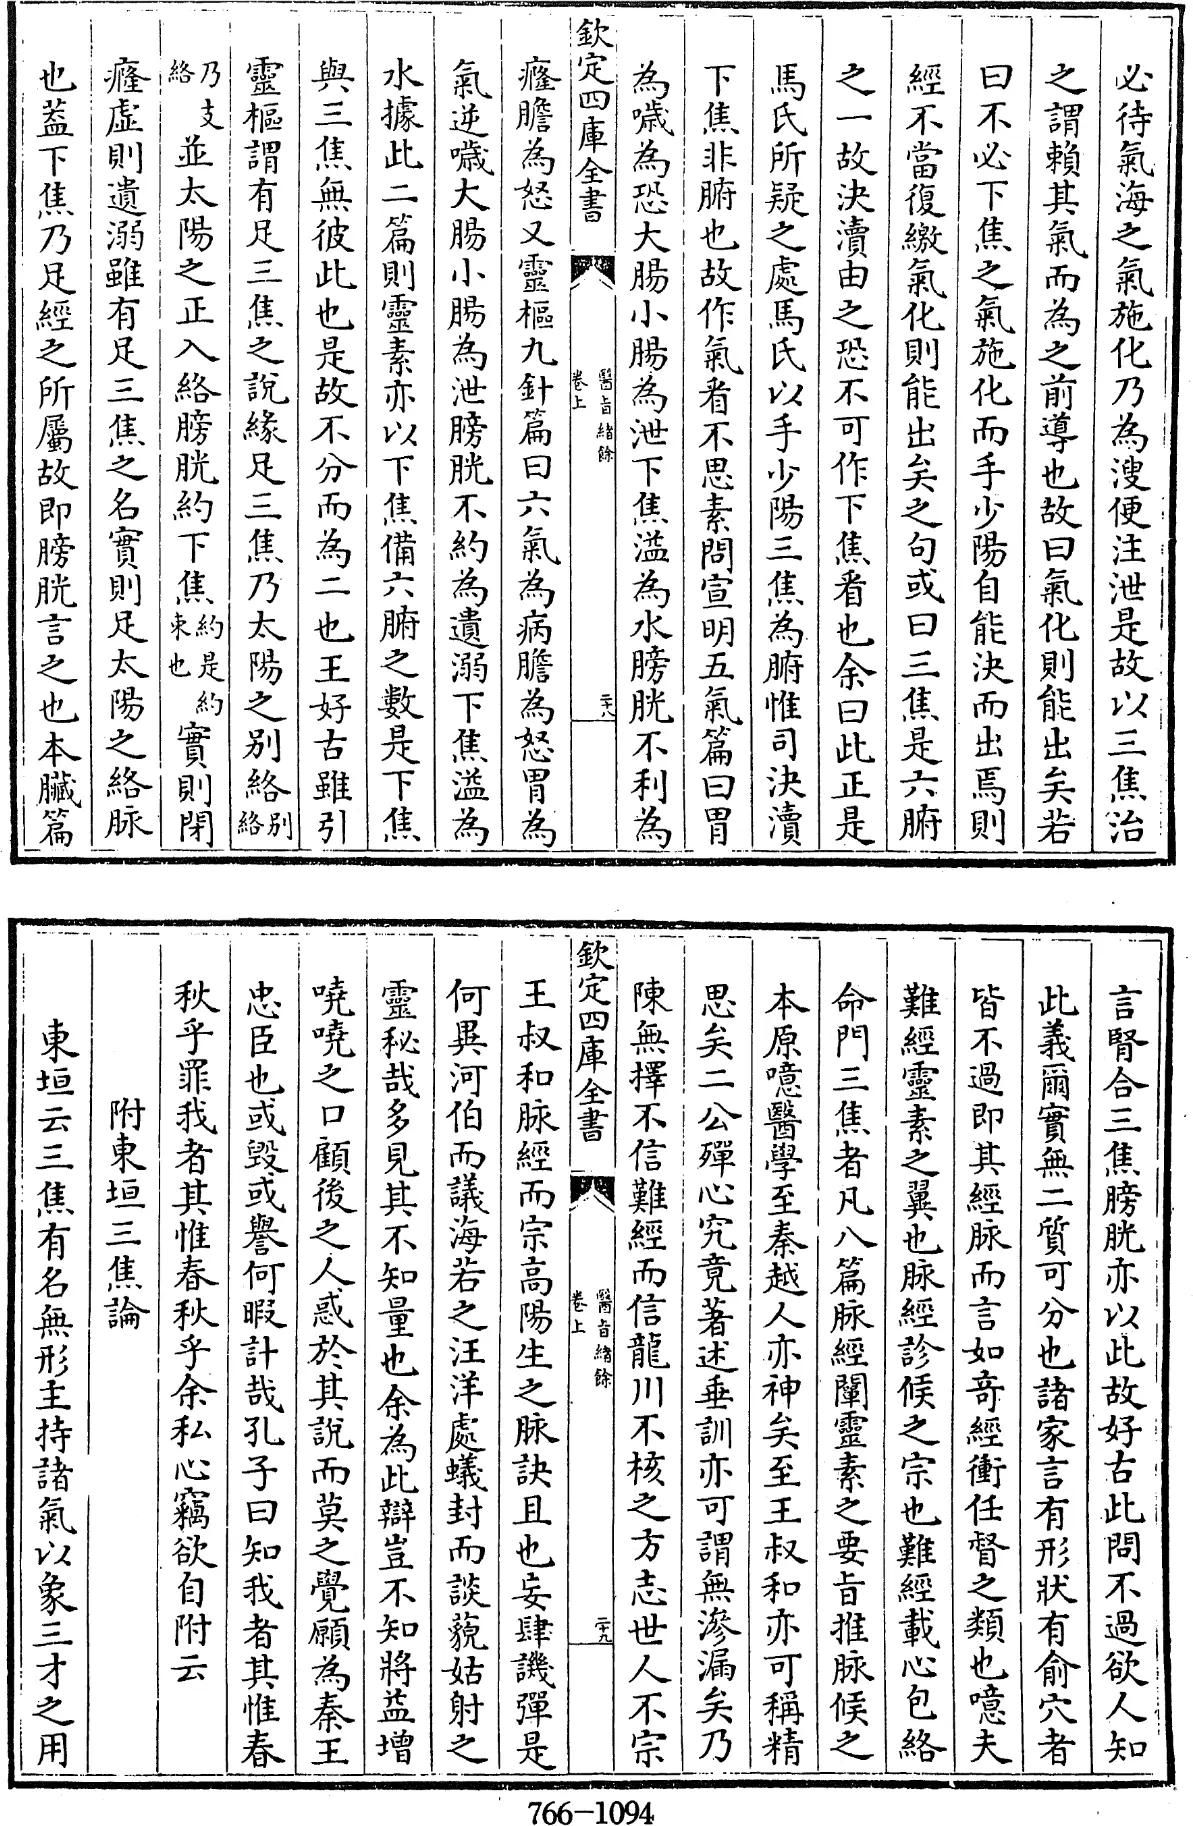 必待氣海之氣施化乃為溲便注泄是故以三焦治
之謂賴其氣而為之前導也故曰氣化則能出矣若
曰不必下焦之氣施化而手少陽自能決而出焉則
經不當復繳氣化則能出矣之句或曰三焦是六腑
之一故決瀆由之恐不可作下焦看也余曰此正是
馬氏所疑之處馬氏以手少陽三焦為腑惟司決瀆
下焦非腑也故作氣看不思素問宣明五氣篇曰胃
為噦為恐大腸小腸為泄下焦溢為水膀胱不利為
欽定四庫全書
醫旨緒餘
卷上
二十八
癃膽為怒又靈樞九針篇曰六氣為病膽為怒胃為
氣逆噦大腸小腸為泄膀胱不約為遺溺下焦溢為
水據此二篇則靈素亦以下焦備六腑之數是下焦
與三焦無彼此也是故不分而為二也王好古雖引
靈樞謂有足三焦之說緣足三焦乃太陽之別絡別絡
乃支絡並太陽之正入絡膀胱約下焦約是約束也實則閉
癃虛則遺溺雖有足三焦之名實則足太陽之絡脉
也葢下焦乃足經之所屬故即膀胱言之也本臓篇
言腎合三焦膀胱亦以此故好古此問不過欲人知
此義爾實無二質可分也諸家言有形狀有俞穴者
皆不過即其經脉而言如竒經衝任督之類也噫夫
難經靈素之翼也脉經診候之宗也難經載心包絡
命門三焦者凡八篇脉經闡靈素之要旨推脉候之
本原噫醫學至秦越人亦神矣至王叔和亦可稱精
思矣二公殫心究竟著述垂訓亦可謂無滲漏矣乃
陳無擇不信難經而信龍川不核之方志世人不宗
欽定四庫全書
醫旨緒餘
卷上
二十九
王叔和脉經而宗高陽生之脉訣且也妄肆譏彈是
何異河伯而議海若之汪洋處蟻封而談藐姑射之
靈秘哉多見其不知量也余為此辯豈不知將益增
嘵嘵之口顧後之人惑於其說而莫之覺願為秦王
忠臣也或毀或譽何暇計哉孔子曰知我者其惟春
秋乎罪我者其惟春秋乎余私心竊欲自附云
附東垣三焦論
東垣云三焦有名無形主持諸氣以象三才之用
766-1094